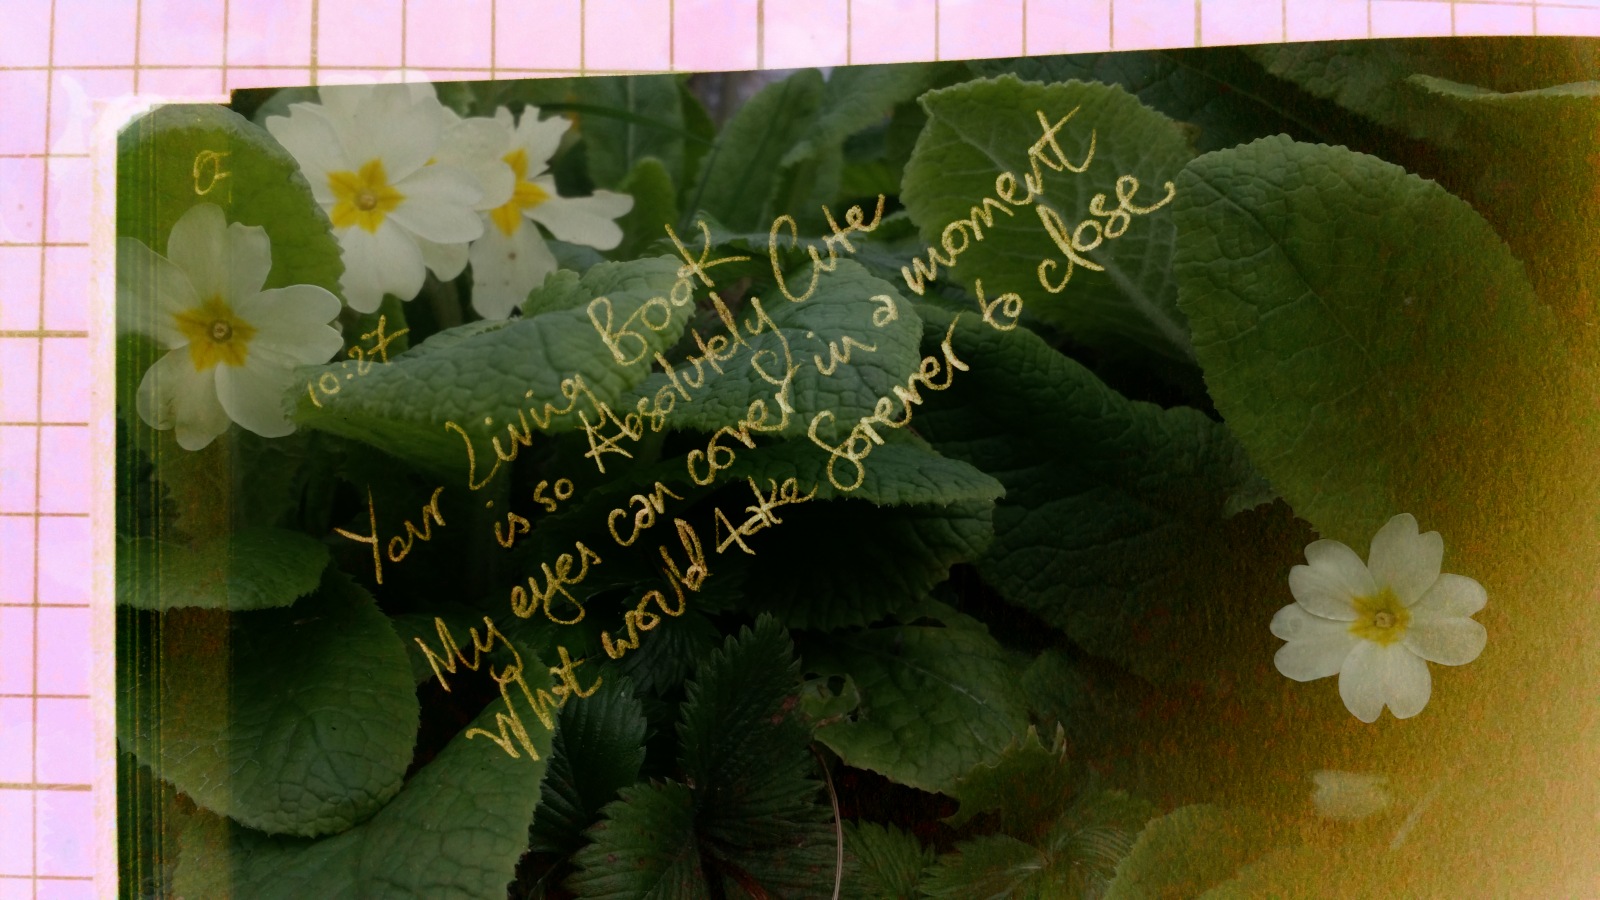 10:27
Your Living Book
is so Absolutely Cute
My eyes can cover in a moment
What would take forever to close